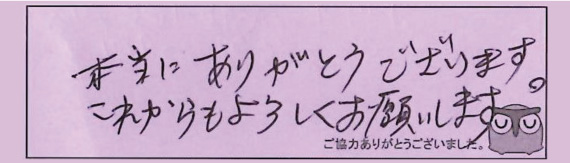 本当にありがとうございます。
これからもよろしくお願いします
ご協力ありがとうございました。